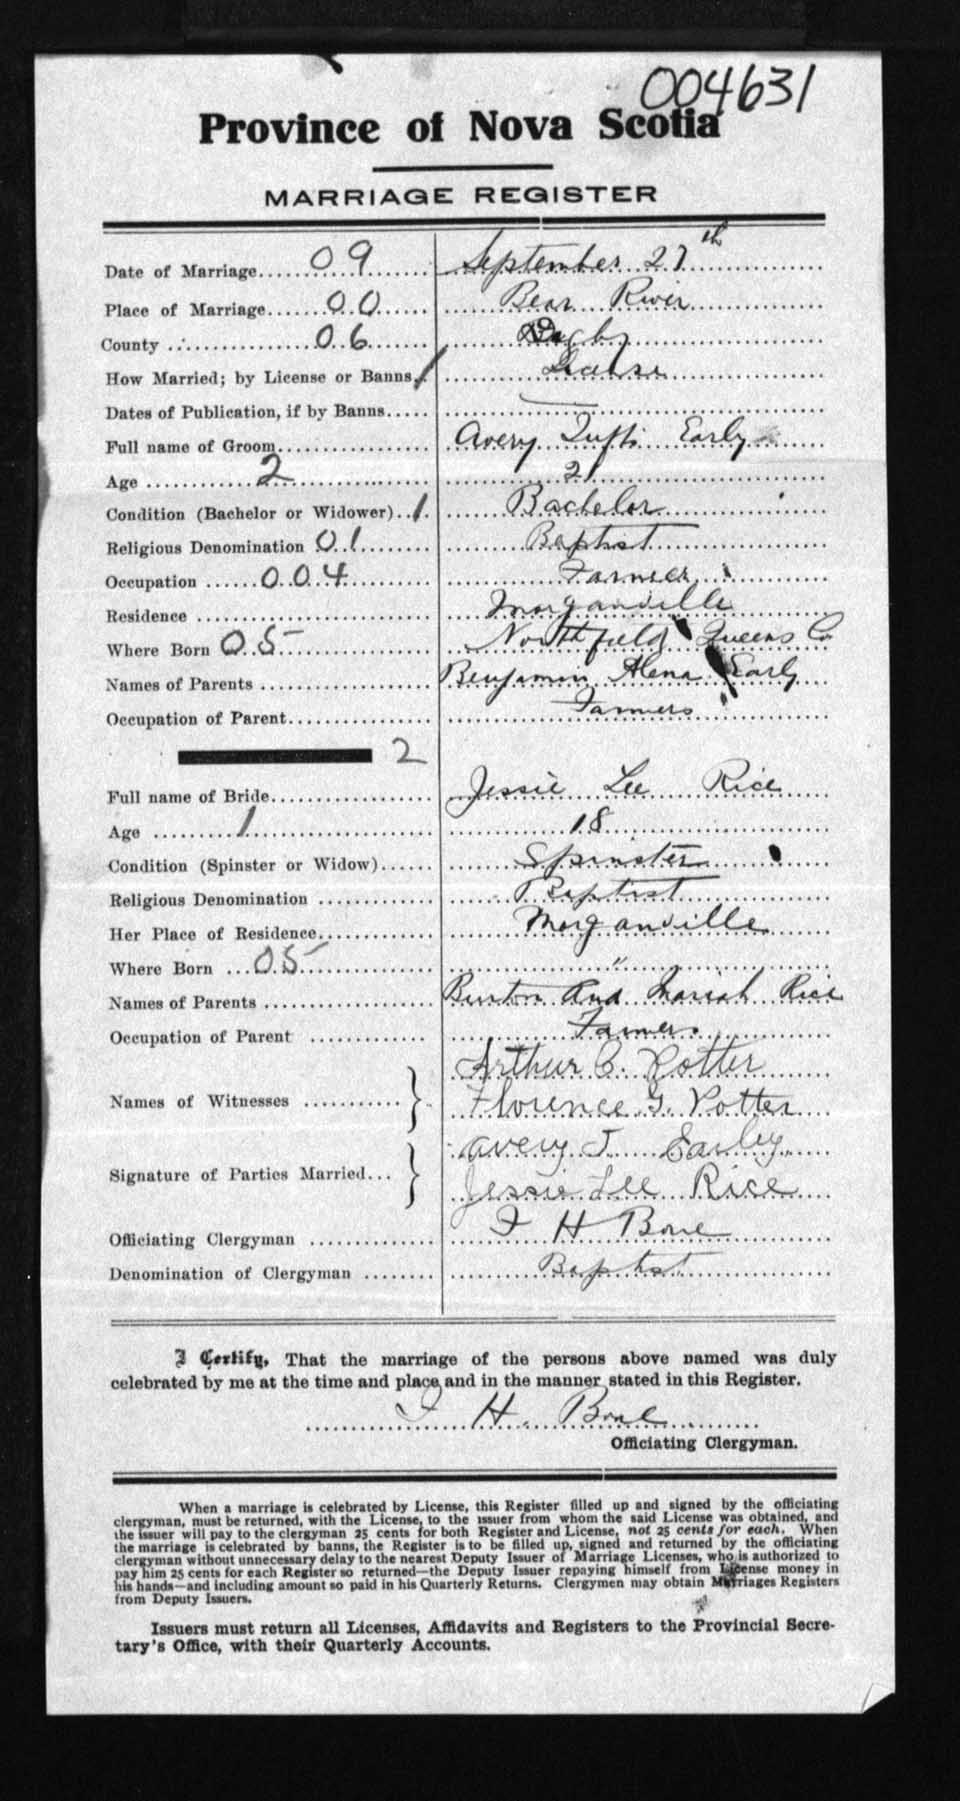 004631
Province of Nova Scotia
MARRIAGE REGISTER
Date of Marriage 09 September 27th
Place of Marriage 00 Bear River
County 06 Digby
How Married; by License or Banns 1
Dates of Publication, if by Banns
Full name of Groom Avery Tufts Early
Age 2 21
Condition (Bachelor or Widower) 1 Bachelor
Religious Denomination 01 Baptist
Occupation 004 Farmer
Residence Morganville
Where Born 05 Northfield Queens Co
Names of Parents Benjamin Alena Early
Occupation of Parent Farmers
2
Full name of Bride Jessie Lee Rice
Age 1 18
Condition (Spinster or Widow) Spinster
Religious Denomination Baptist
Her Place of Residence Morganville
Where Born 05 "
Names of Parents Burton and Mariah Rice
Occupation of Parent Farmers
Arthur C. Potter
Names of Witnesses } Florence G. Potter
Avery T Earley
Signature of Parties Married } Jessie Lee Rice
Officiating Clergyman I H Bone
Denomination of Clergyman Baptist
I Certify, That the marriage of the persons above named was duly
celebrated by me at the time and place and in the manner stated in this Register.
I H. Bone
Officiating Clergyman.
When a marriage is celebrated by License, this Register filled up and signed by the officiating
clergyman, must be returned, with the License, to the issuer from whom the said License was obtained, and
the issuer will pay to the clergyman 25 cents for both Register and License, not 25 cents for each. When
the marriage is celebrated by banns, the Register is to be filled up, signed and returned by the officiating
clergyman without unnecessary delay to the nearest Deputy Issuer of Marriage Licenses, who is authorized to
pay him 25 cents for each Register so returned—the Deputy Issuer repaying himself from License money in
his hands—and including amount so paid in his Quarterly Returns. Clergymen may obtain Marriages Registers
from Deputy Issuers.
Issuers must return all Licenses, Affidavits and Registers to the Provincial Secre-
tary's Office, with their Quarterly Accounts.